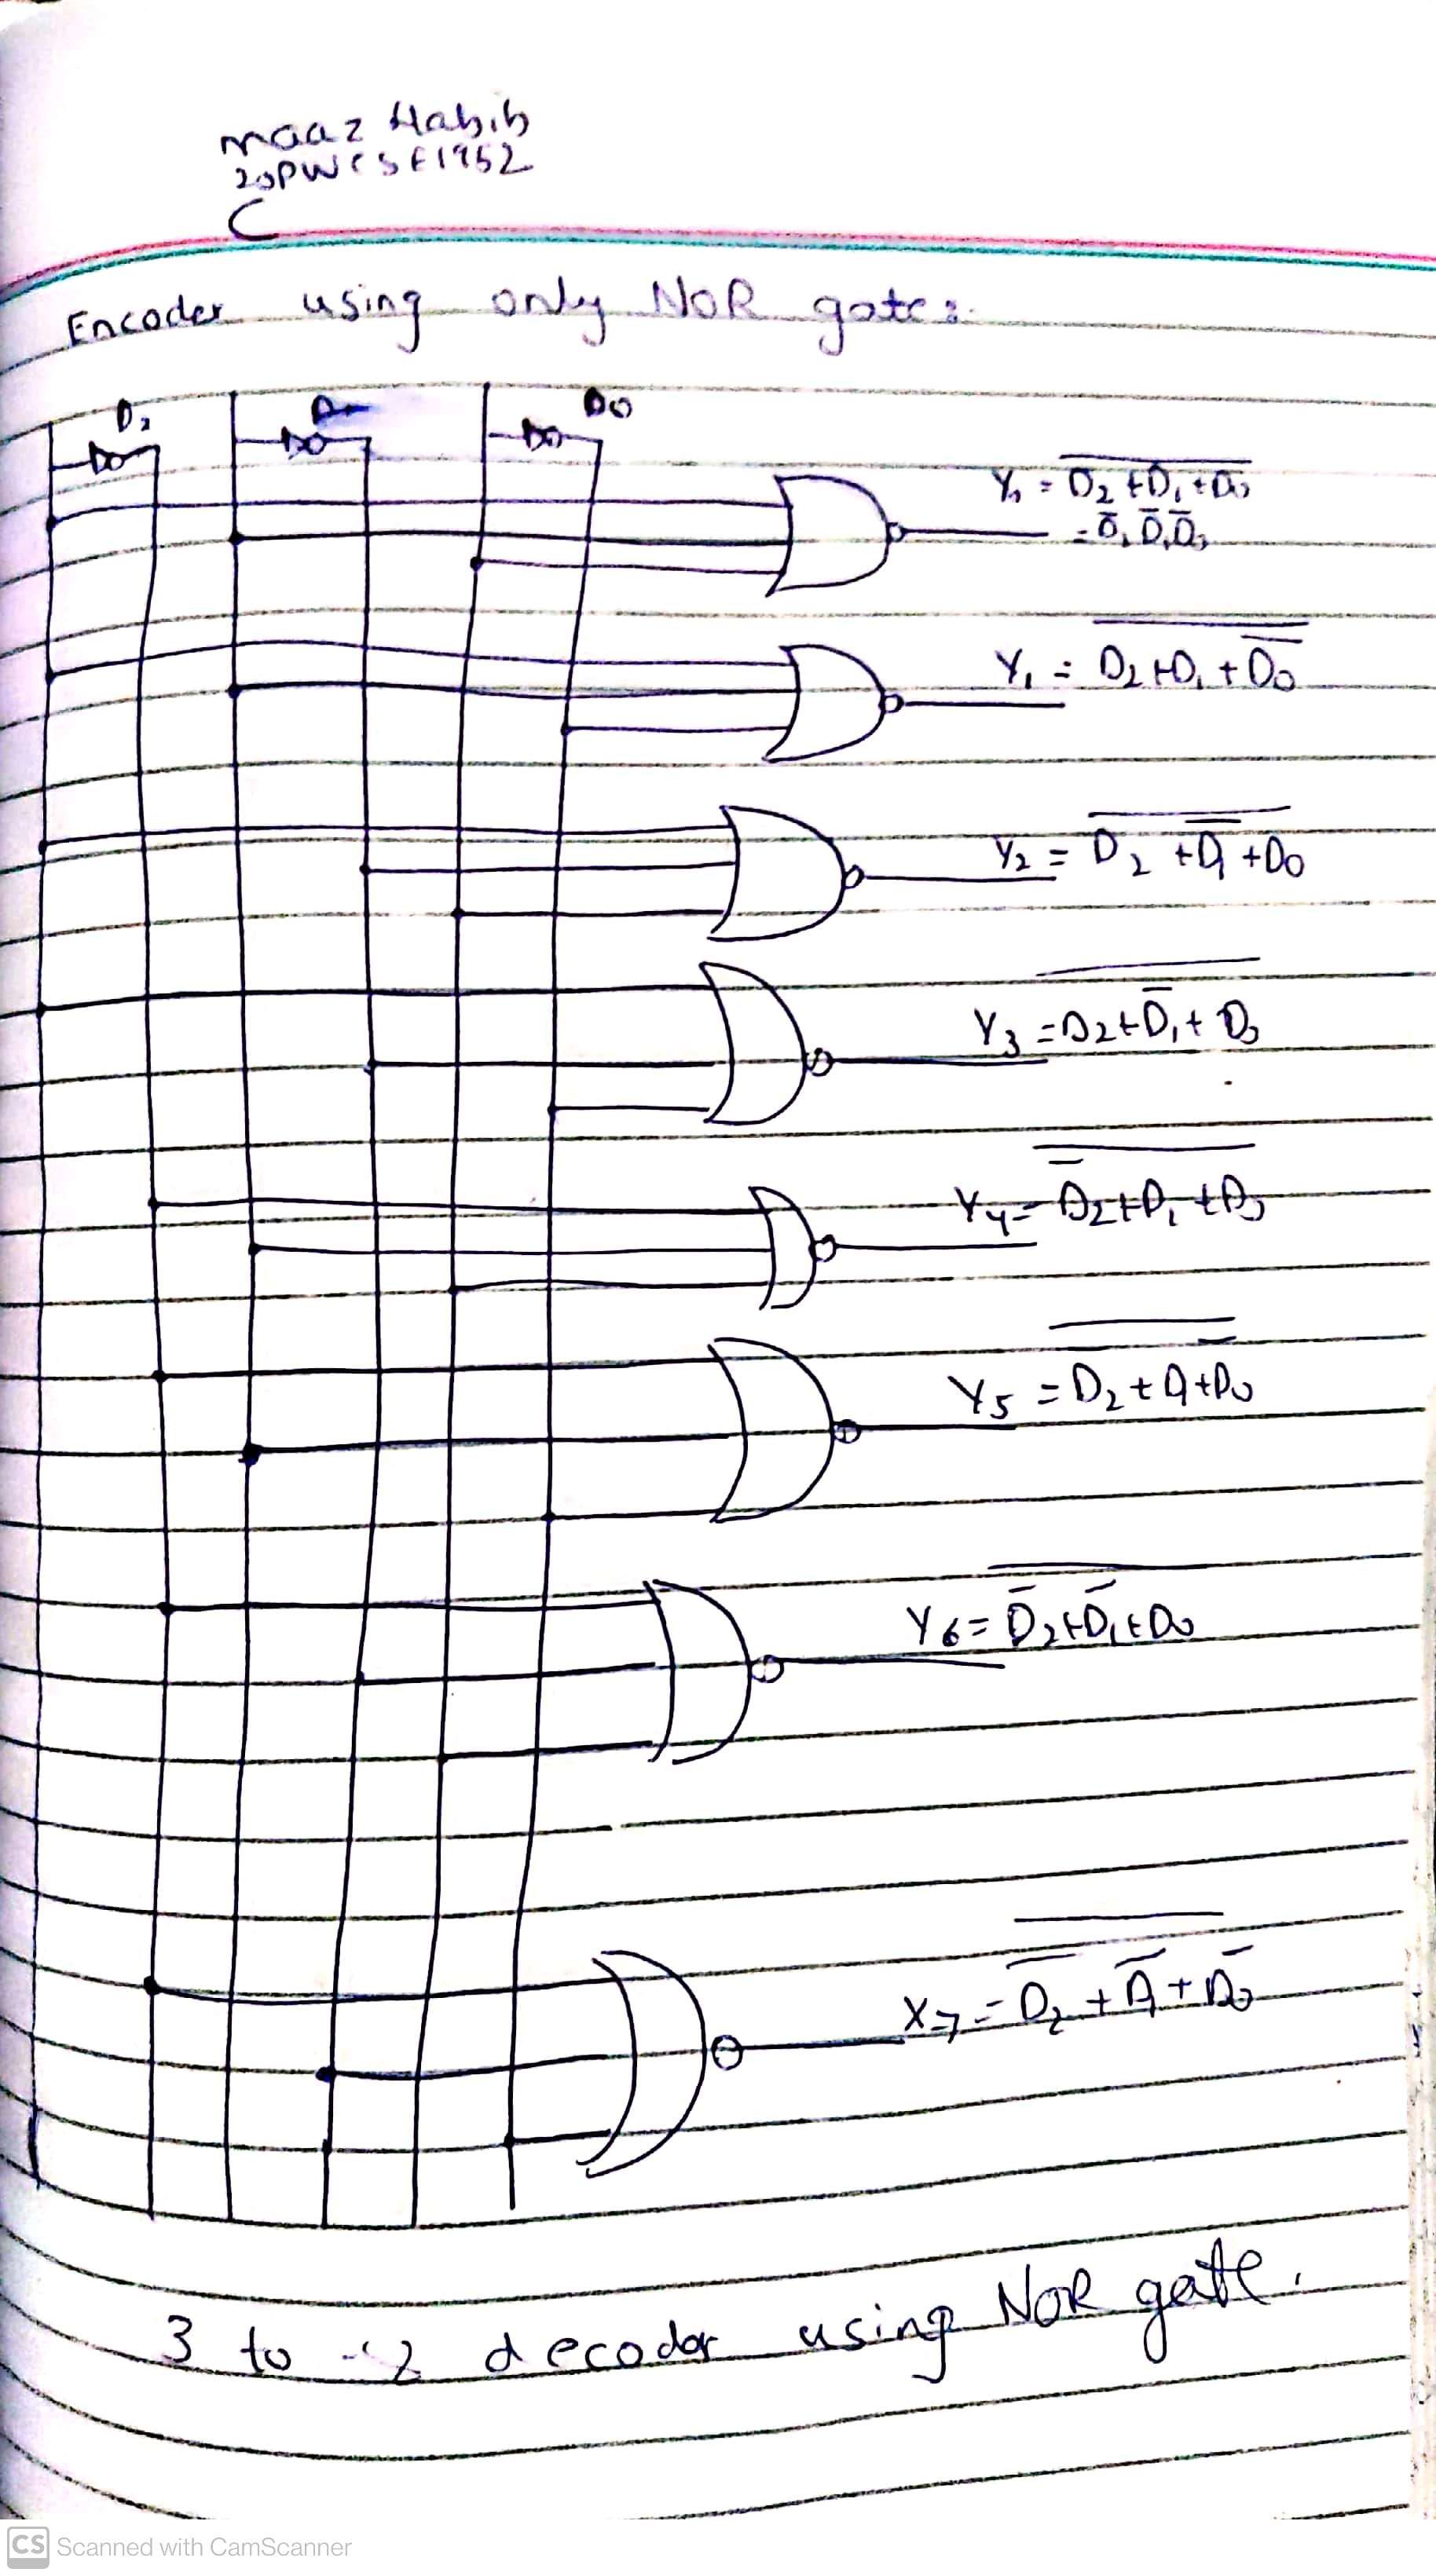 maaz Habib
20PWCSE1952
C
Encoder using only NOR gates.
D₂ D₀
Y₀ = \overline{D₂+D₁+D₀}
= D̅₂ D̅₁ D̅₀
Y₁ = \overline{D₂+D₁+\overline{D₀}}
Y₂ = \overline{D₂+\overline{D₁}+D₀}
Y₃ = \overline{D₂+\overline{D₁}+D₀}
Y₄ = \overline{\overline{D₂}+D₁+D₀}
Y₅ = \overline{D₂+D₁+\overline{D₀}}
Y₆ = \overline{\overline{D₂}+\overline{D₁}+D₀}
X₇ = \overline{\overline{D₂}+\overline{D₁}+\overline{D₀}}
3 to decoder using NOR gate.
CS Scanned with CamScanner